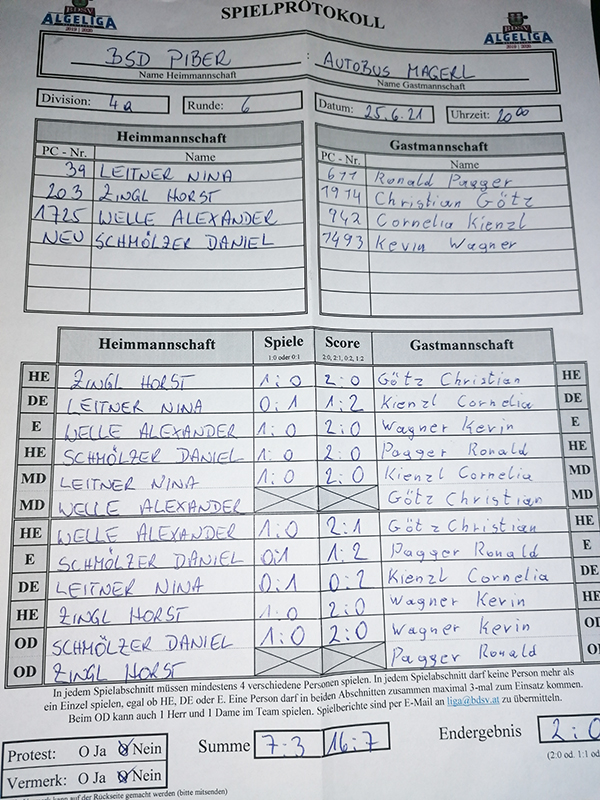 BDSV
ALGELIGA
2019 | 2020
SPIELPROTOKOLL
BDSV
ALGELIGA
2019 | 2020
BSD PIBER : AUTOBUS MAGERL
Name Heimmannschaft Name Gastmannschaft
Division: 4a Runde: 6 Datum: 25.6.21 Uhrzeit: 20 00
Heimmannschaft Gastmannschaft
PC - Nr. Name PC - Nr. Name
39 LEITNER NINA 611 Ronald Pagger
203 ZINGL HORST 1914 Christian Götz
1725 WELLE ALEXANDER 942 Cornelia Kienzl
NEU SCHMÖLZER DANIEL 1493 Kevin Wagner
Heimmannschaft Spiele Score Gastmannschaft
1:0 oder 0:1 2:0, 2:1, 0:2, 1:2
HE ZINGL HORST 1:0 2:0 Götz Christian HE
DE LEITNER NINA 0:1 1:2 Kienzl Cornelia DE
E WELLE ALEXANDER 1:0 2:0 Wagner Kevin E
HE SCHMÖLZER DANIEL 1:0 2:0 Pagger Ronald HE
MD LEITNER NINA 1:0 2:0 Kienzl Cornelia MD
MD WELLE ALEXANDER Götz Christian MD
HE WELLE ALEXANDER 1:0 2:1 Götz Christian HE
E SCHMÖLZER DANIEL 0:1 1:2 Pagger Ronald E
DE LEITNER NINA 0:1 0:2 Kienzl Cornelia DE
HE ZINGL HORST 1:0 2:0 Wagner Kevin HE
OD SCHMÖLZER DANIEL 1:0 2:0 Wagner Kevin OD
OD ZINGL HORST Pagger Ronald O
In jedem Spielabschnitt müssen mindestens 4 verschiedene Personen spielen. In jedem Spielabschnitt darf keine Person mehr als
ein Einzel spielen, egal ob HE, DE oder E. Eine Person darf in beiden Abschnitten zusammen maximal 3-mal zum Einsatz kommen.
Beim OD kann auch 1 Herr und 1 Dame im Team spielen. Spielberichte sind per E-Mail an liga@bdsv.at zu übermitteln.
Protest: O Ja O Nein Summe 7:3 16:7 Endergebnis 2:0
Vermerk: O Ja O Nein (2:0 od. 1:1 od
kann auf der Rückseite gemacht werden (bitte mitsenden)